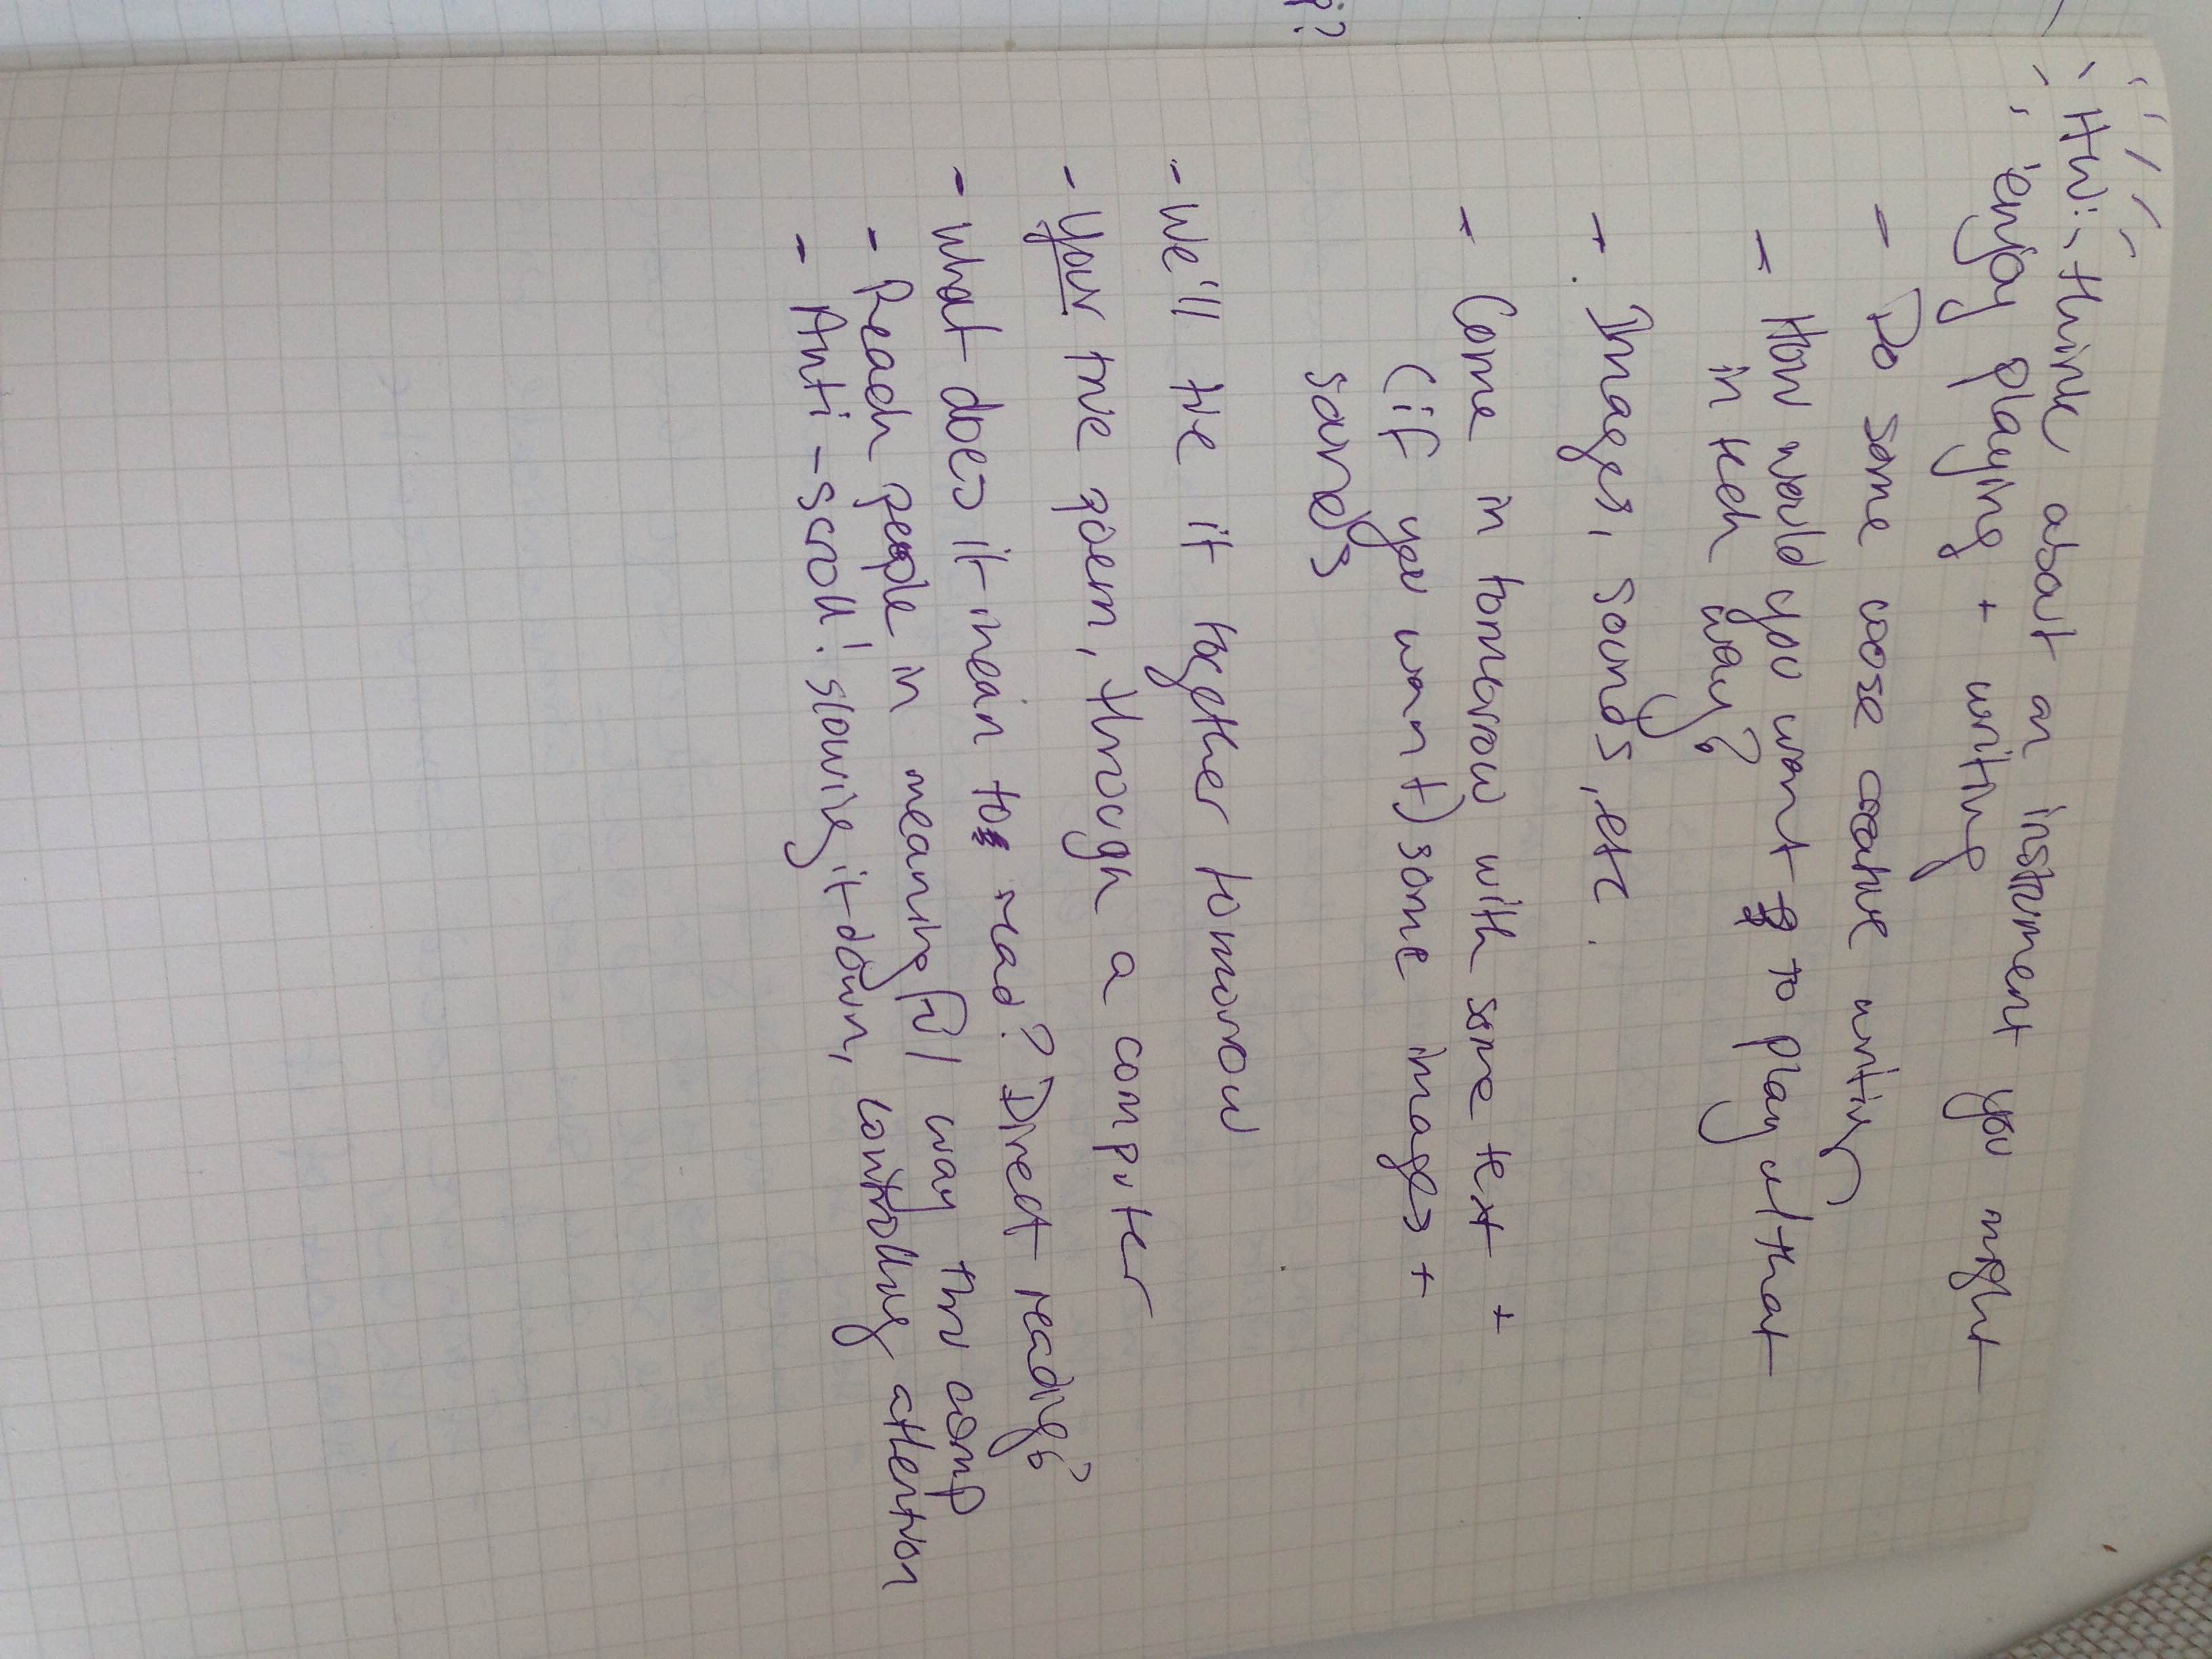 HW: think about an instrument you might
enjoy playing + writing
- Do some loose creative writing
- How would you want to play w/ that
in tech way?
- Images, sounds, etc.
- Come in tomorrow with some text +
(if you want) some images +
sounds
- We'll tie it together tomorrow
- Your true poem, through a computer
- What does it mean to read? Direct reading?
- Reach people in meaningful way thru comp
- Anti-scroll! slowing it down, controlling attention